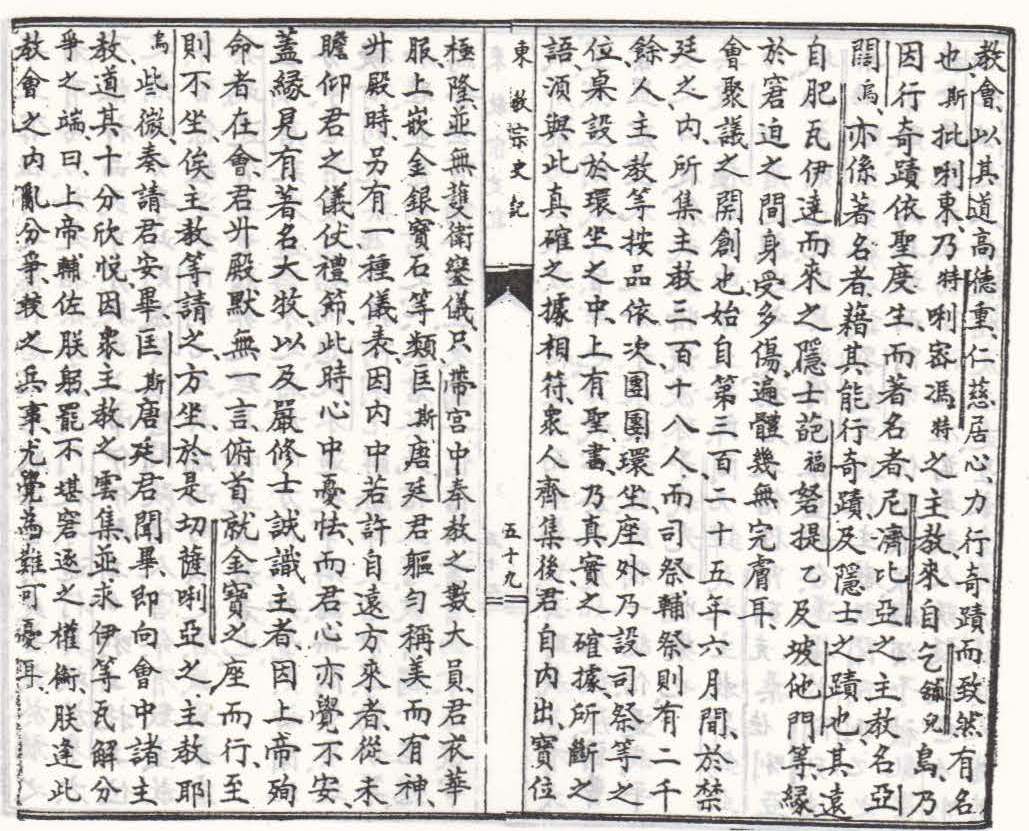 教會、以其道高德重、仁慈居心、力行奇蹟而致然、有名
也、斯批唎東、乃特唎密馮特之主教、來自乞鋪兒島、乃
因行奇蹟依聖度生、而著名者、尼濟比亞之主教名亞
闊烏、亦係著名者、藉其能行奇蹟、及隱士之蹟也、其遠
自肥瓦伊達而來之隱士葩福努提乙、及坡他門等、緣
於窘迫之間身受多傷、遍體幾無完膚耳、
會聚議之開創也、始自第三百二十五年六月間、於禁
廷之內、所集主教三百十八人、而司祭輔祭則有二千
餘人、主教等按品依次、團團環坐、座外乃設司祭等之
位、桌設於環坐之中、上有聖書、乃真實之確據、所斷之
語、須與此真確之據相符、衆人齊集後、君自內出、寶位
東教宗史記
五十九
極隆、並無雙衛鑾儀、只帶宮中奉教之數大員、君衣華
服、上嵌金銀寶石等類、匡斯唐廷君軀勻稱美、而有神、
升殿時、另有一種儀表、因內中若許自遠方來者、從未
瞻仰君之儀伏禮節、此時心中憂怯、而君心亦覺不安、
蓋緣見有著名大牧、以及嚴修士、誠識主者、因上帝殉
命者在會、君升殿默無一言、俯首就金寶之座而行、至
則不坐、俟主教等請之、方坐、於是切薩唎亞之主教耶
烏、些微、奏請君安、畢、匡斯唐廷君聞畢、即向會中諸主
教道其十分欣悅、因衆主教之雲集、並求伊等瓦解分
爭之端曰、上帝輔佐朕躬、罷不堪窘逐之權衡、朕逢此
教會之內亂分爭、較之兵事、尤覺為難可憂耳、